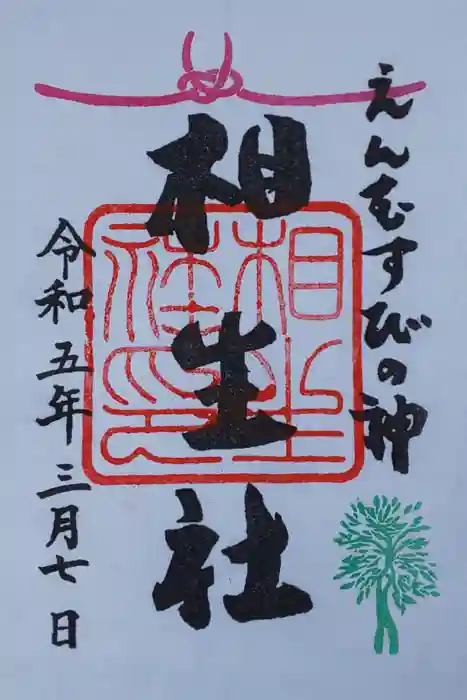 えんむすびの神
相生社
相生社印
令和五年三月七日